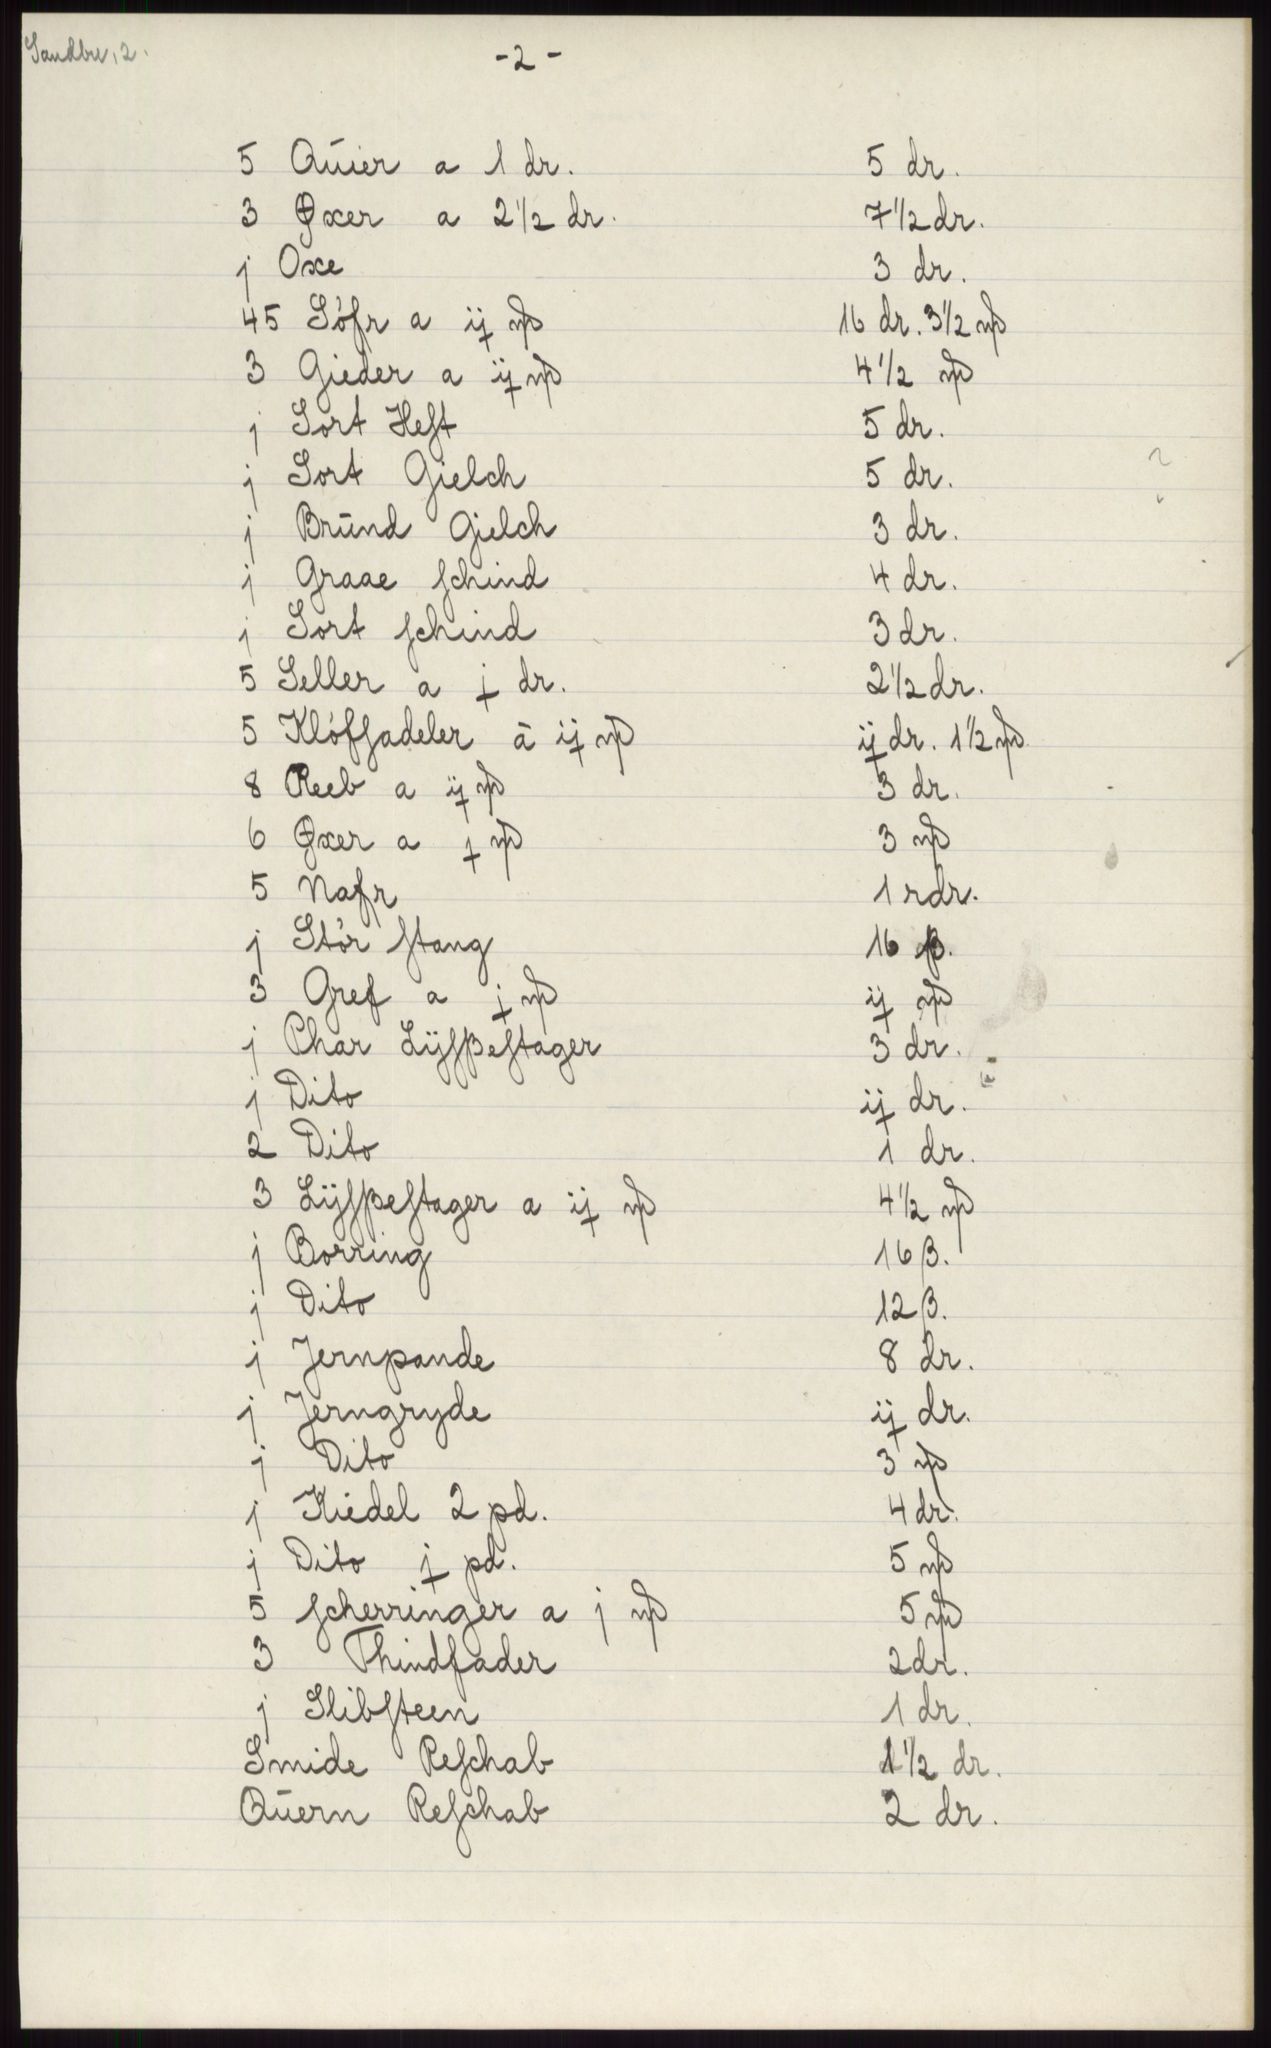 Sandbu, 2.
- 2 -
5 Qūier a 1 dr. 5 dr.
3 Øxer a 2 1/2 dr. 7 1/2 dr.
j Oxe 3 dr.
45 Sófr a ij mþ 16 dr. 3 1/2 mþ
3 Gieder a ij mþ 4 1/2 mþ
j Sort Heſt 5 dr.
j Sort Gielch 5 dr. ?
j Brūnd Gielch 3 dr.
j Graae ſchind 4 dr.
j Sort ſchind 3 dr.
5 Seller a j dr. 2 1/2 dr.
5 Klófſadeler ā ij mþ ij dr. 1 1/2 mþ
8 Reeb a ij mþ 3 dr.
6 Øxer a j mþ 3 mþ
5 Nafr 1 rdr.
j Stór ſtang 16 β.
3 Gref a j mþ ij mþ
j Phar Lÿſβeſtager 3 dr.
j Dito ij dr.
2 Dito 1 dr.
3 Lÿſβeſtager a ij mþ 4 1/2 mþ
j Borring 16 β.
j Dito 12 β.
j Jernpande 8 dr.
j Jerngryde ij dr.
j Dito 3 mþ
j Kiedel 2 pd. 4 dr.
j Dito j pd. 5 mþ
5 ſcherringer a j mþ 5 mþ
3 Thindfader 2 dr.
j Slibſteen 1 dr.
Smide Reſchab 1 1/2 dr.
Qūern Reſchab 2 dr.